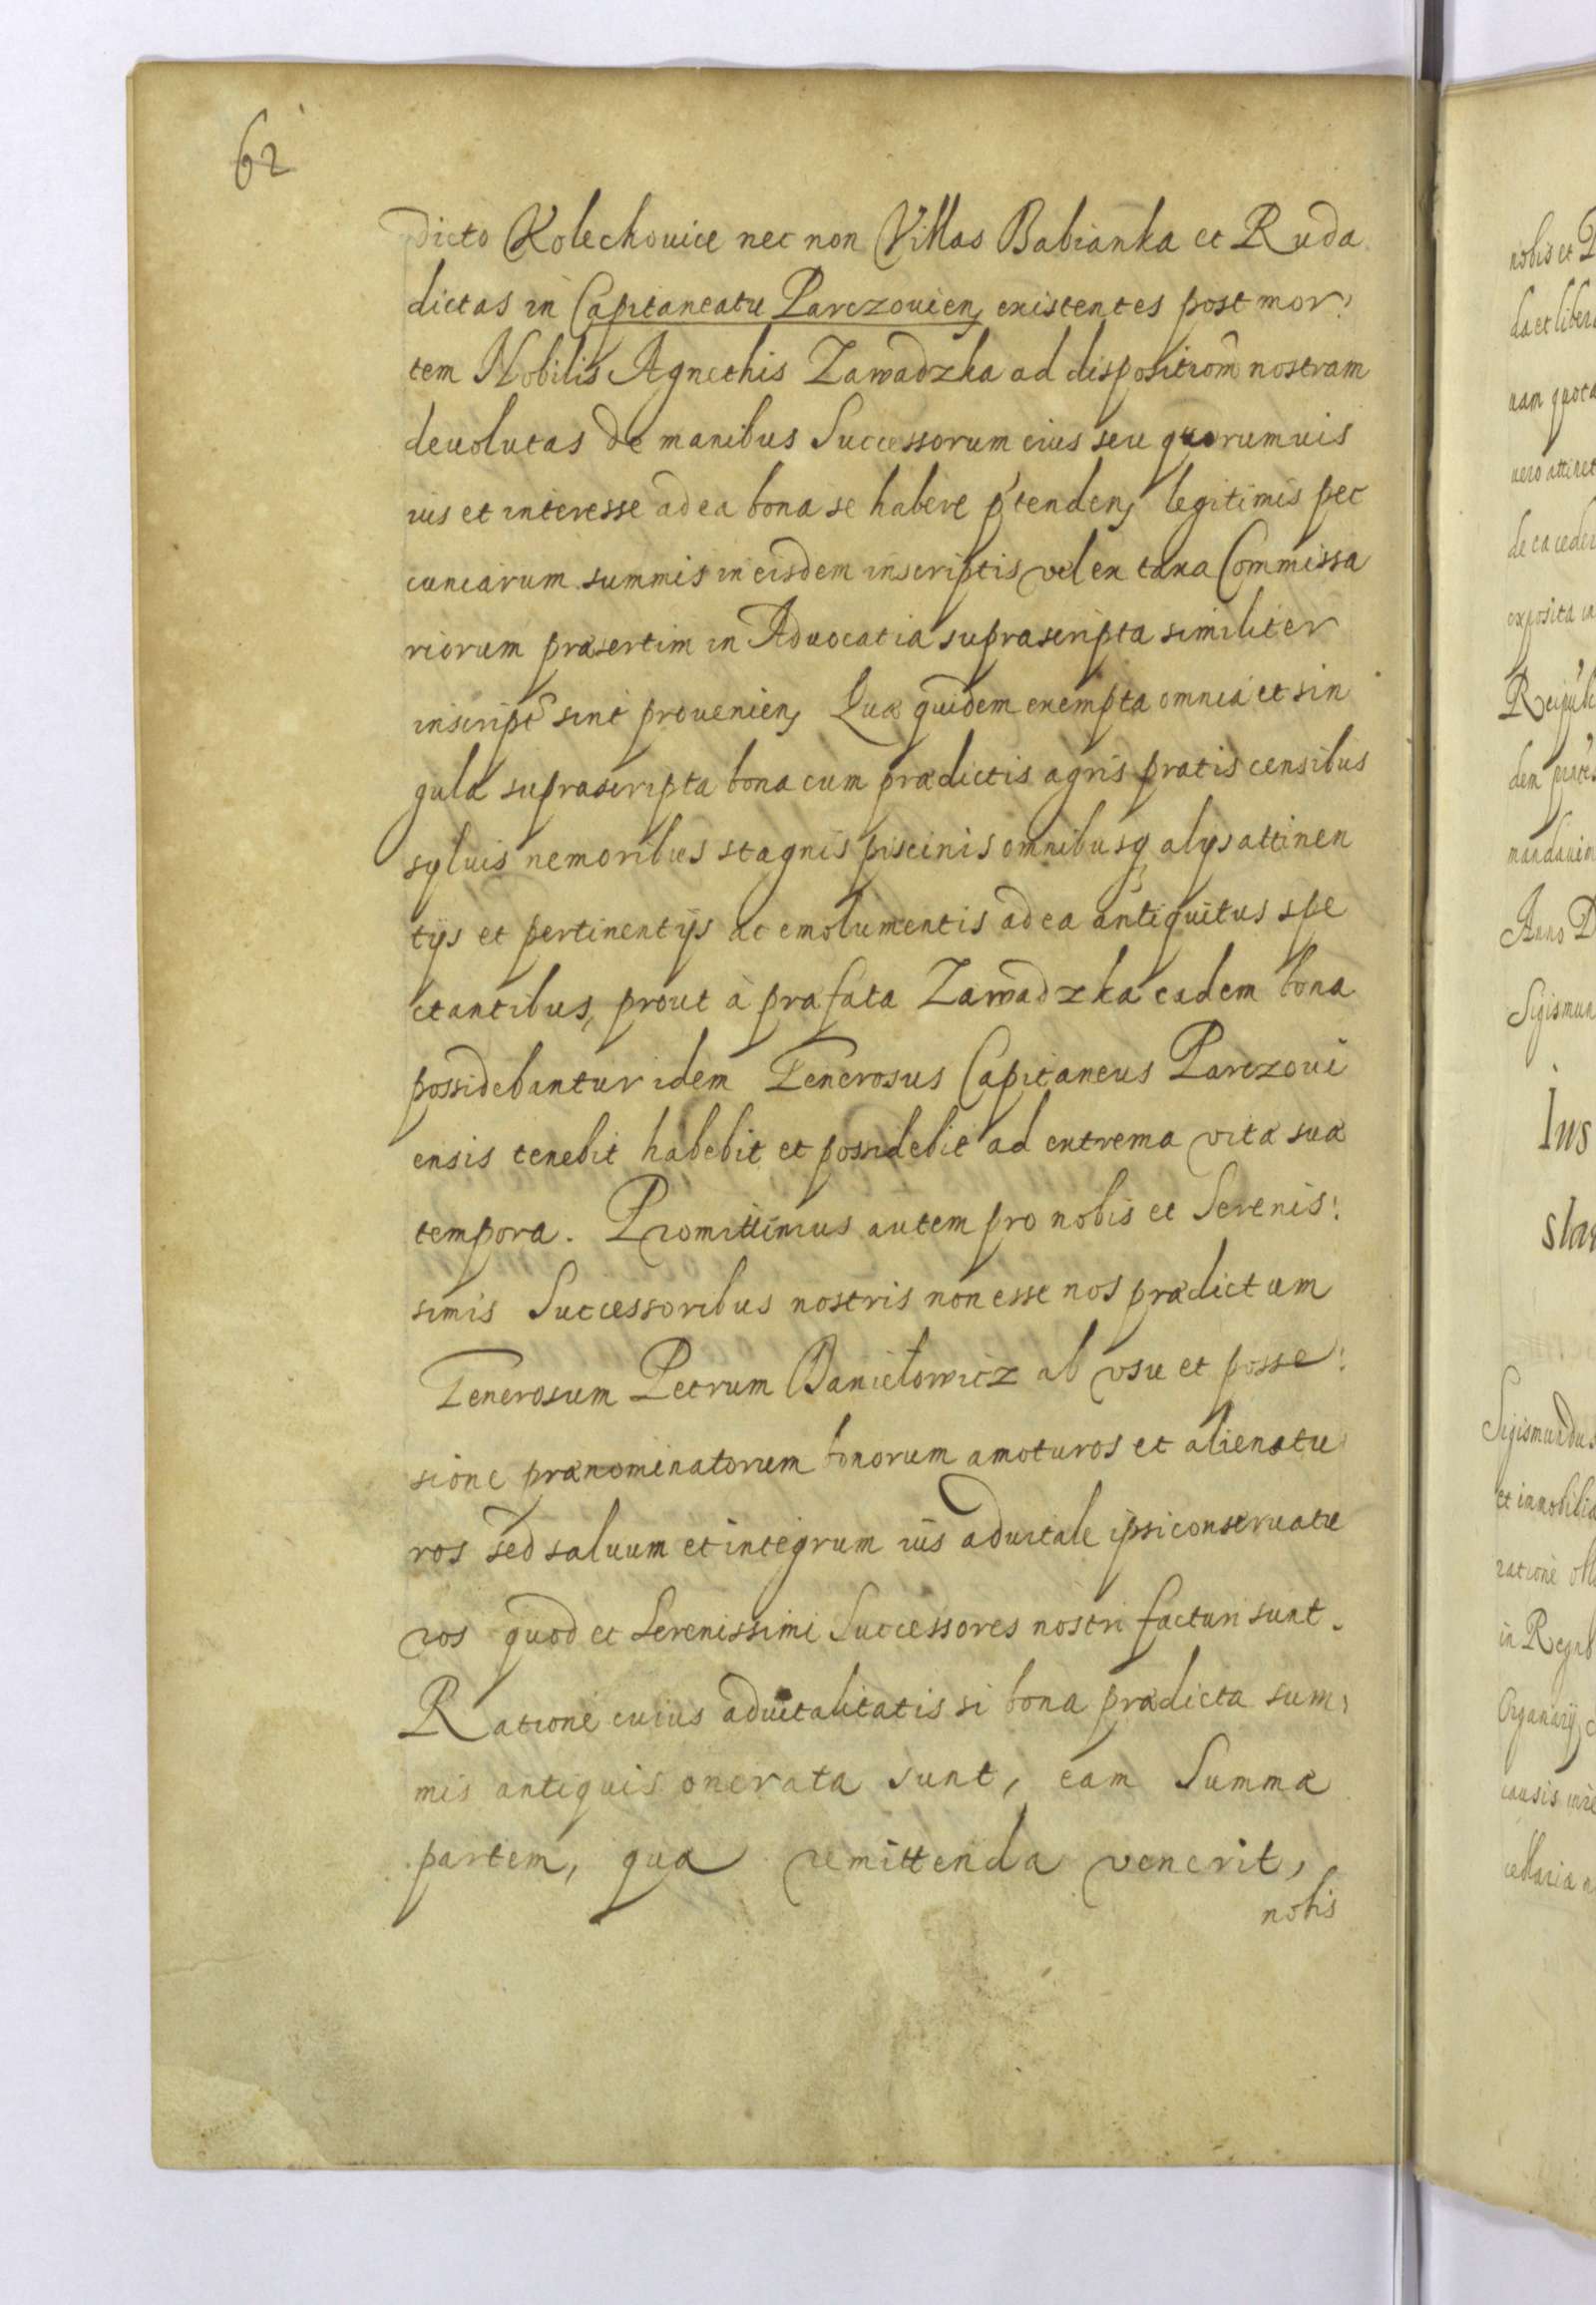 62
dicto Kolechouice nec non Villas Babianka et Ruda
dictas in Capitaneatu Parczouien, existentes post mor,
tem Nobilis Agnethis Zawadzka ad dispositiom̄ nostram
deuolutas de manibus Successorum eius seu quorumuis
ius et interesse ad ea bona se habere p'tenden, legitimis pec
cuniarum summis in eisdem inscriptis vel ex taxa Commissa
riorum præsertim in Aduocatia suprascripta similiter
inscript sint prouenien, Quæ quidem exempta omnia et sin
gula suprascripta bona cum prædictis agris pratis censibus
syluis nemoribus stagnis piscinis omnibusq₃ alys attinen
tijs et pertinentijs ac emolumentis ad ea antiquitus spe
ctantibus, prout à præfata Zawadzka eadem bona
possidebantur idem Generosus Capitaneus Parczoui
ensis tenebit habebit et possidebit ad extrema vitæ suæ
tempora. Promittimus autem pro nobis et Serenis:
simis Successoribus nostris non esse nos prædictum
Generosum Petrum Daniełowicz ab vsu et posse:
sione prænominatorum bonorum amoturos et alienatu
ros sed saluum et integrum ius aduitale ipsi conseruatu
ros quod et Serenissimi Successores nostri facturi sunt.
Ratione cuius aduitalitatis si bona prædicta sum,
mis antiquis onerata sunt, eam Summæ
partem, quæ remittenda venerit,
nobis
nobis et
da et liber
uam quota
uero attinet
de ea ceder
exposita
Reipub
dem
mandauim
Anno D
Sigismun
Ius
sta
Sigismundus
et immobilia
ratione
in Regno
Organarij
causis